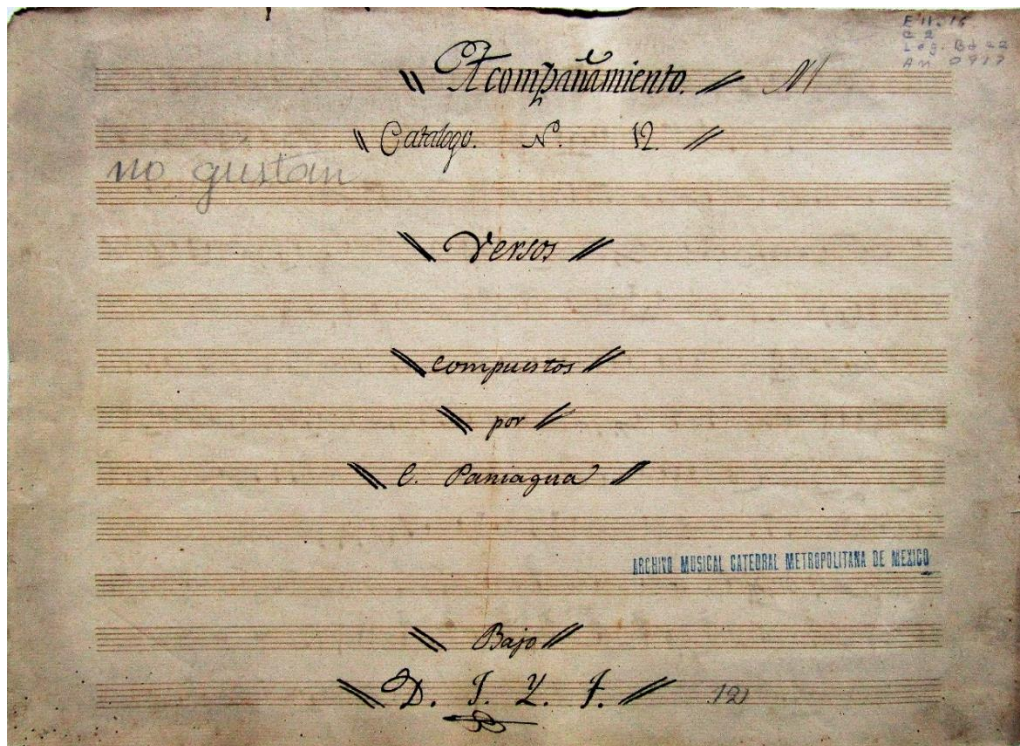 E 11.15
C 2
Leg. Bd 22
AM 0977
Acompañamiento.
Catalogo. N. 12.
no gustan
Versos
compuestos
por
C. Paniagua
ARCHIVO MUSICAL CATEDRAL METROPOLITANA DE MEXICO
Bajo
D. I. Y. F.